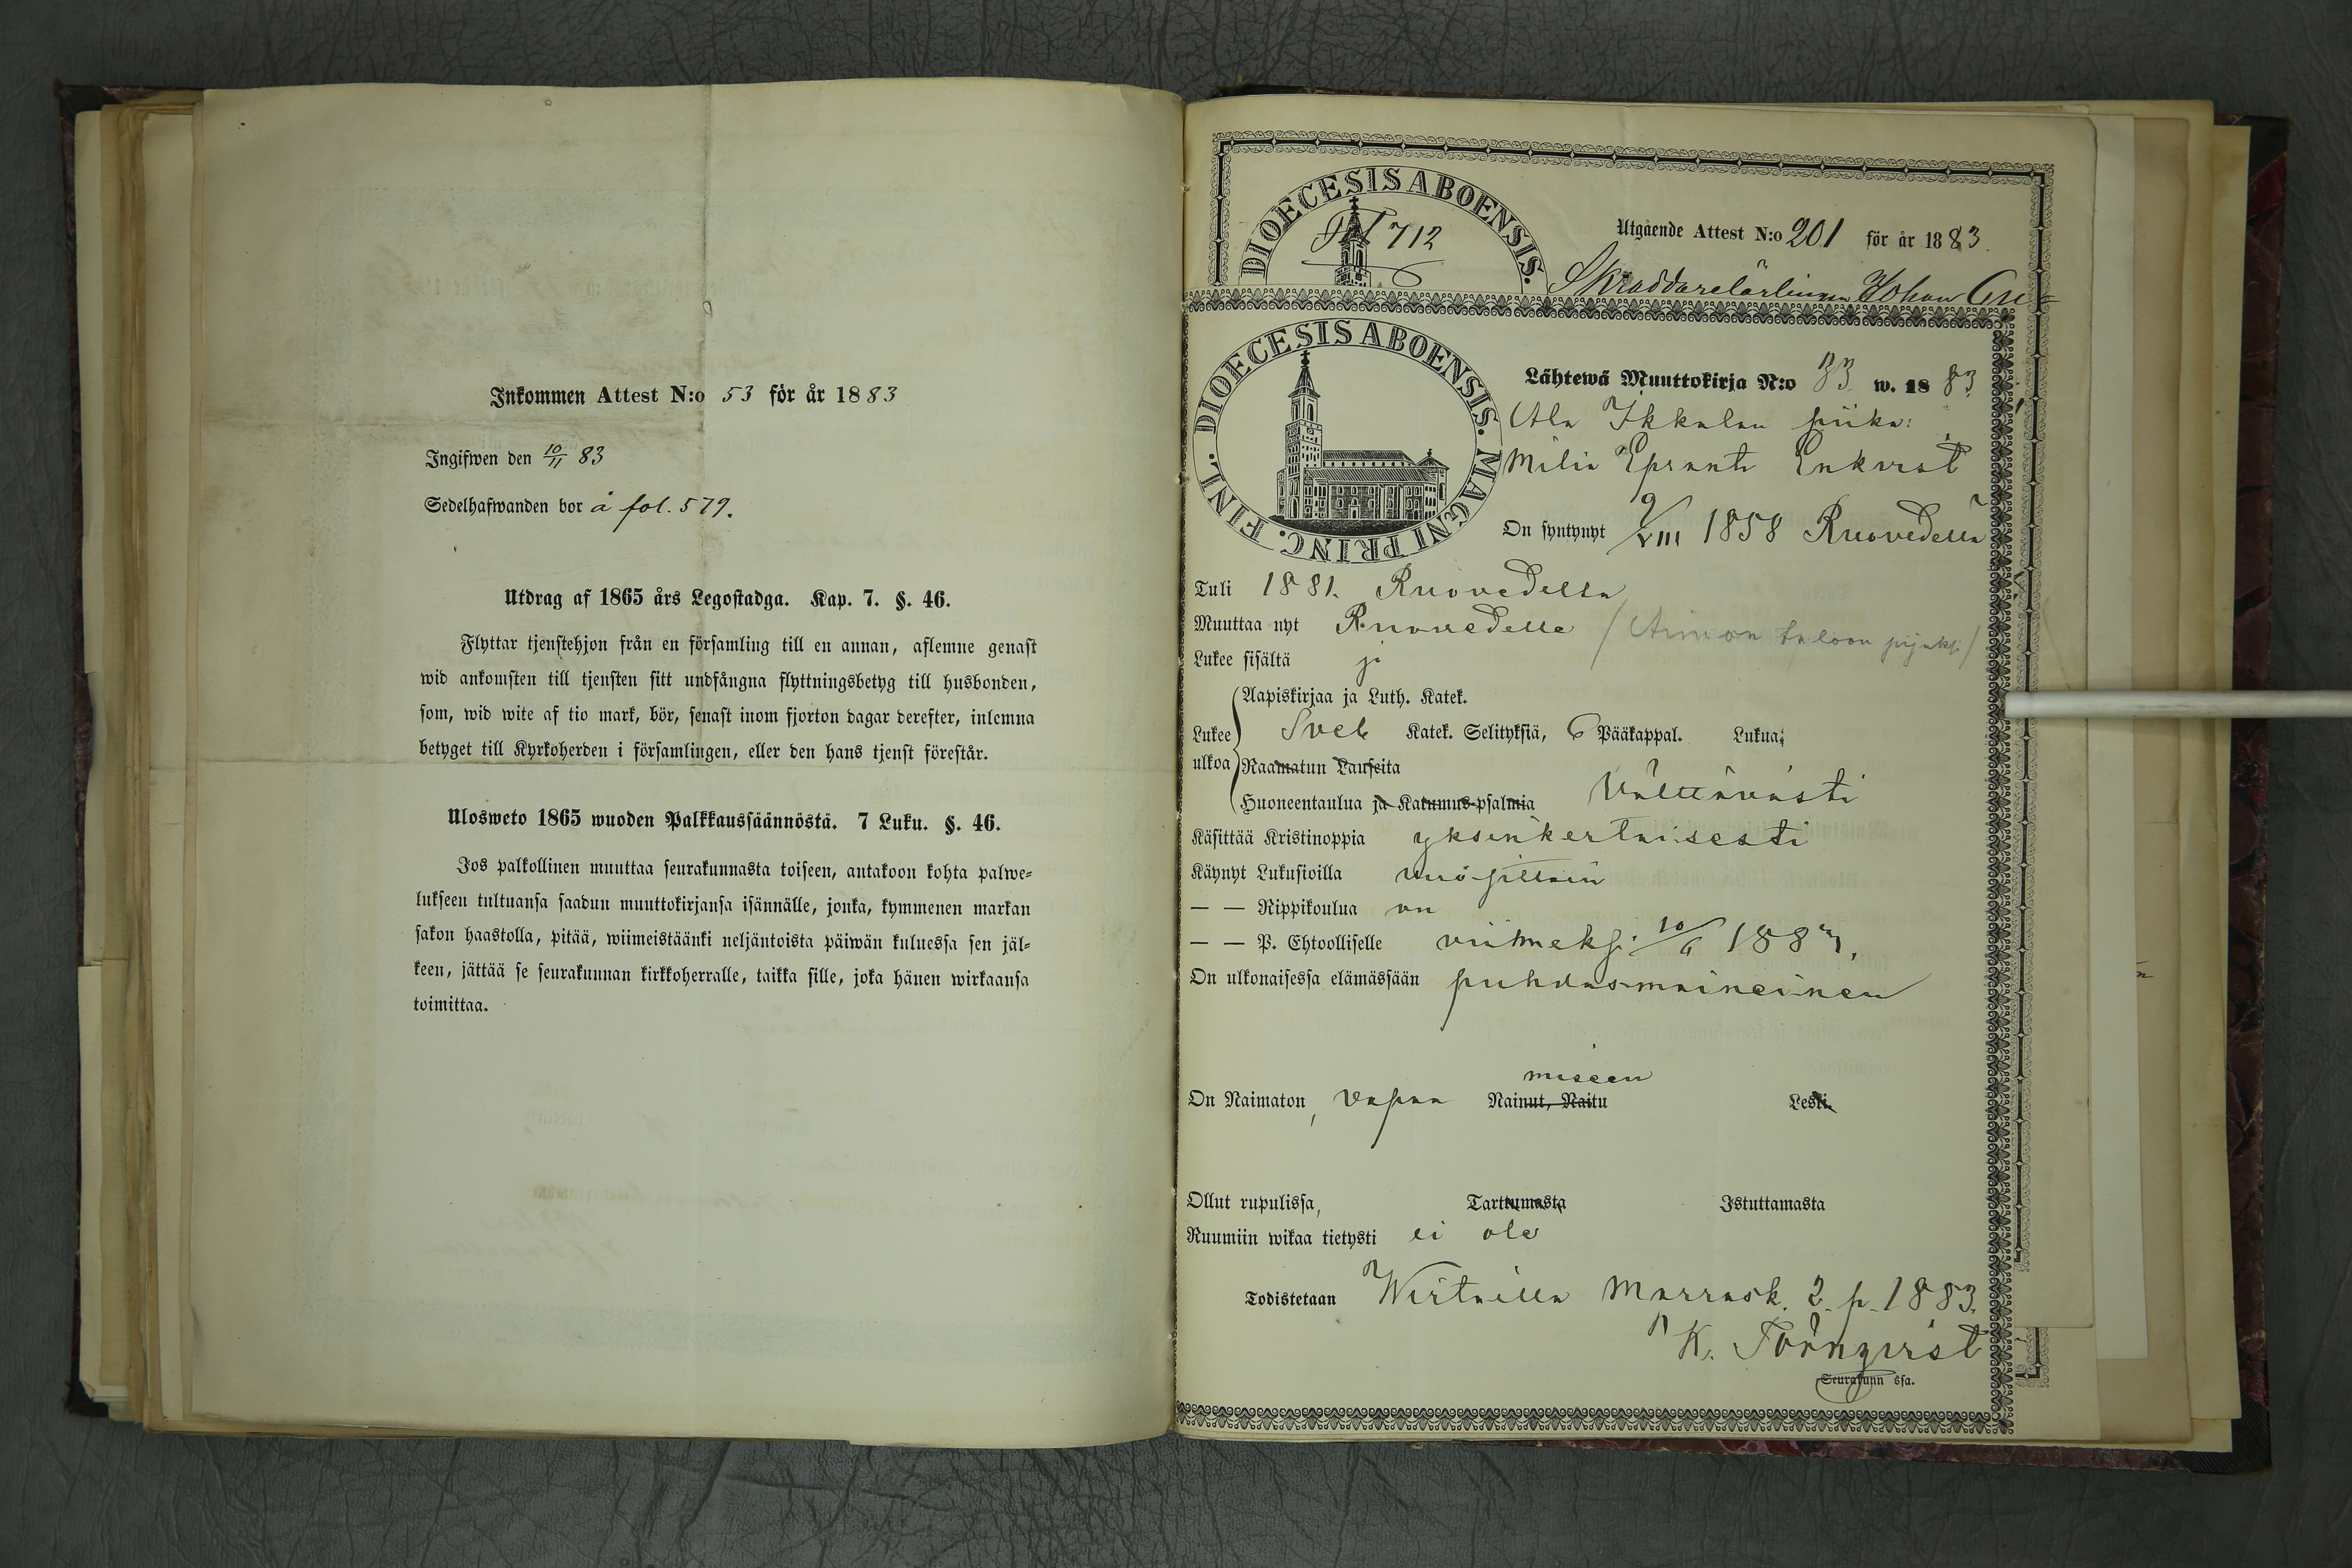 Inkommen Attest N:o 53 för år 1883
Ingifwen den 10/11 83
Sedelhafwanden bor å fol. 579.
Utdrag af 1865 års Legostadga. Kap. 7. §. 46.
Flyttar tjenstehjon från en församling till en annan, aflemne genast
wid ankomsten till tjensten sitt undfångna flyttningsbetyg till husbonden,
som, wid wite af tio mark, bör, senast inom fjorton dagar derefter, inlemna
betyget till Kyrkoherden i församlingen, eller den hans tjenst förestår.
Ulosweto 1865 wuoden Palkkaussäännöstä. 7 Luku. §. 46.
Jos palkollinen muuttaa seurakunnasta toiseen, antakoon kohta palwe-
lukseen tultuansa saadun muuttokirjansa isännälle, jonka, kymmenen markan
sakon haastolla, pitää, wiimeistäänki neljäntoista päiwän kuluessa sen jäl-
keen, jättää se seurakunnan kirkkoherralle, taikka sille, joka hänen wirkaansa
toimittaa.
DIOECESIS ABOENSIS.
712
Utgående Attest N:o 201 för år 1883.
Skräddarelärlingen Johan
DIOECESIS ABOENSIS. MAGNI PRINC. FINL.
Lähtewä Muuttokirja N:o 33 w. 1883
Ala Ikkalan piika:
Milia Eprantr Enkvist
On syntynyt 9/VIII 1858 Ruovedellä
Tuli 1881. Ruovedeltä
Muuttaa nyt Ruovedelle / Aimon taloon pijaksi /
Lukee sisältä ja
Aapiskirjaa ja Luth. Katek.
Lukee ulkoa Sveb Katek. Selityksiä, 6 Pääkappal. Lukua;
Raamatun Lauseita
Huoneentaulua ja Katumus-psalmia Välttävästi
Käsittää Kristinoppia yksinkertaisesti
Käynyt Lukusioilla vuosittain
— — Rippikoulua on
— — P. Ehtoollisella viimeksi 10/6 1883.
On ulkonaisessa elämässään puhdasmaineinen
miseen
On Naimaton, vapaa Nainut, Naitu Leski.
Ollut rupulissa, Tarttumasta Istuttamasta
Ruumiin wikaa tietysti ei ole
Todistetaan Wirtailla Marrask. 2. p. 1883.
K. Törnqvist
Seurakunn ssa.